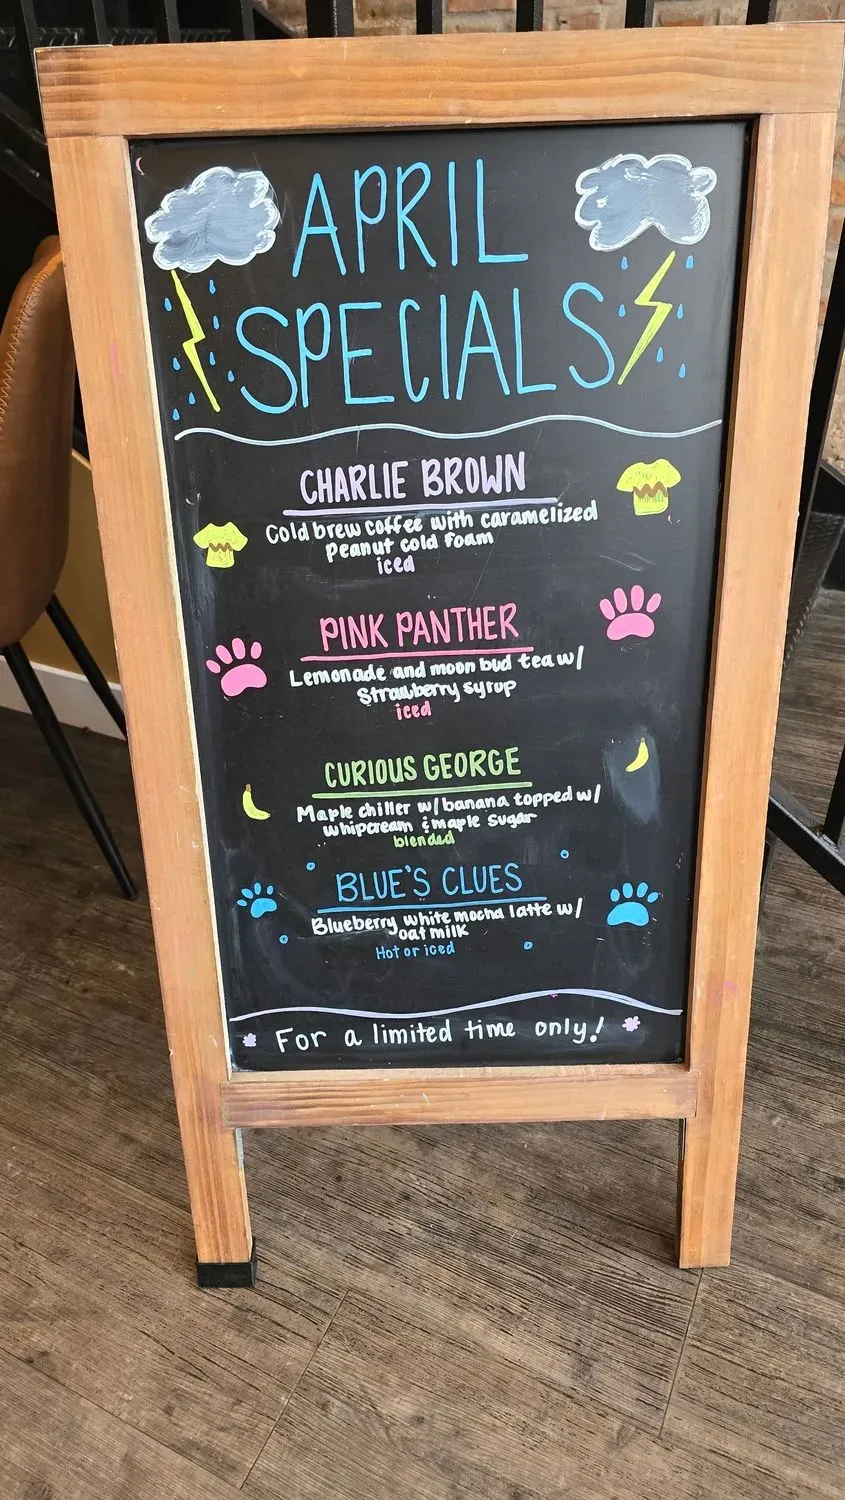 APRIL
SPECIALS
CHARLIE BROWN
Cold brew coffee with caramelized
peanut cold foam
iced
PINK PANTHER
Lemonade and moon bud tea w/
Strawberry syrup
iced
CURIOUS GEORGE
Maple chiller w/ banana topped w/
whipcream & maple sugar
blended
BLUE'S CLUES
Blueberry white mocha latte w/
oat milk
Hot or iced
For a limited time only!